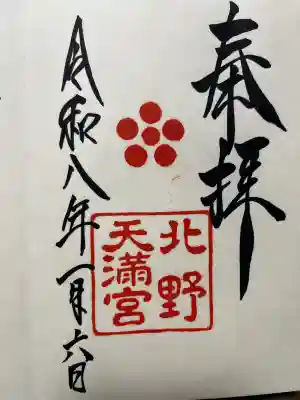 奉拝
北野
天満宮
令和八年一月六日